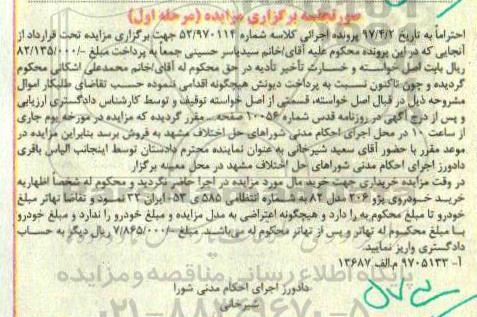 صورتجلسه برگزاری مزایده (مرحله اول)
احتراماً به تاریخ ۹۷/۴/۲ پرونده اجرائی کلاسه شماره ۵۲/۹۷۰۱۱۴ جهت برگزاری مزایده تحت قرارداد از
آنجایی که در این پرونده محکوم علیه آقای/خانم سیدیاسر حسینی جمعاً به پرداخت مبلغ ۸۲/۱۳۵/۰۰۰/-
ریال بابت اصل خواسته و خسارت تأخیر تأدیه در حق محکوم له آقای/خانم محمدعلی اشکانی محکوم
گردیده و چون تاکنون نسبت به پرداخت دیونش هیچگونه اقدامی ننموده حسب تقاضای طلبکار اموال
مشروحه ذیل در قبال اصل خواسته، قسمتی از اصل خواسته توقیف و توسط کارشناس دادگستری ارزیابی
و پس از درج آگهی در روزنامه قدس شماره ۱۰۰۵۶ صفحه ... مقرر گردیده که مزایده در مورخه یوم جاری
از ساعت ۱۰ در محل اجرای احکام مدنی شوراهای حل اختلاف مشهد به فروش برسد بنابراین مزایده در
موعد مقرر با حضور آقای سعید شیرخانی به عنوان نماینده محترم دادستان توسط اینجانب الیاس باقری
دادورز اجرای احکام مدنی شوراهای حل اختلاف مشهد در محل معینه برگزار
در وقت مزایده خریداری جهت خرید مال مورد مزایده در اجرا حاضر نگردید و محکوم له شخصاً اظهاریه
خرید خودروی پژو ۲۰۶ مدل ۸۲ به شماره انتظامی ۵۸۵ ی ۵۳ ایران ۳۲ نمود و تقاضا تهاتر مبلغ
خودرو تا مبلغ محکوم به را دارد و هیچگونه اعتراضی به مدل مزایده و مبلغ خودرو را ندارد و مبلغ خودرو
با مبلغ محکوم له تهاتر و پس از تهاتر محکوم له می‌باشید. مبلغ ۷/۸۶۵/۰۰۰/- ریال دیگر به حساب
دادگستری واریز نمایید.
آ- ۹۷۰۵۱۳۳ م.الف ۱۳۶۸۷
دادورز اجرای احکام مدنی شورا
شیرخانی
پایگاه اطلاع رسانی مناقصه و مزایده
۰۲۱-۸۸۳۴۹۶۷۰-۵